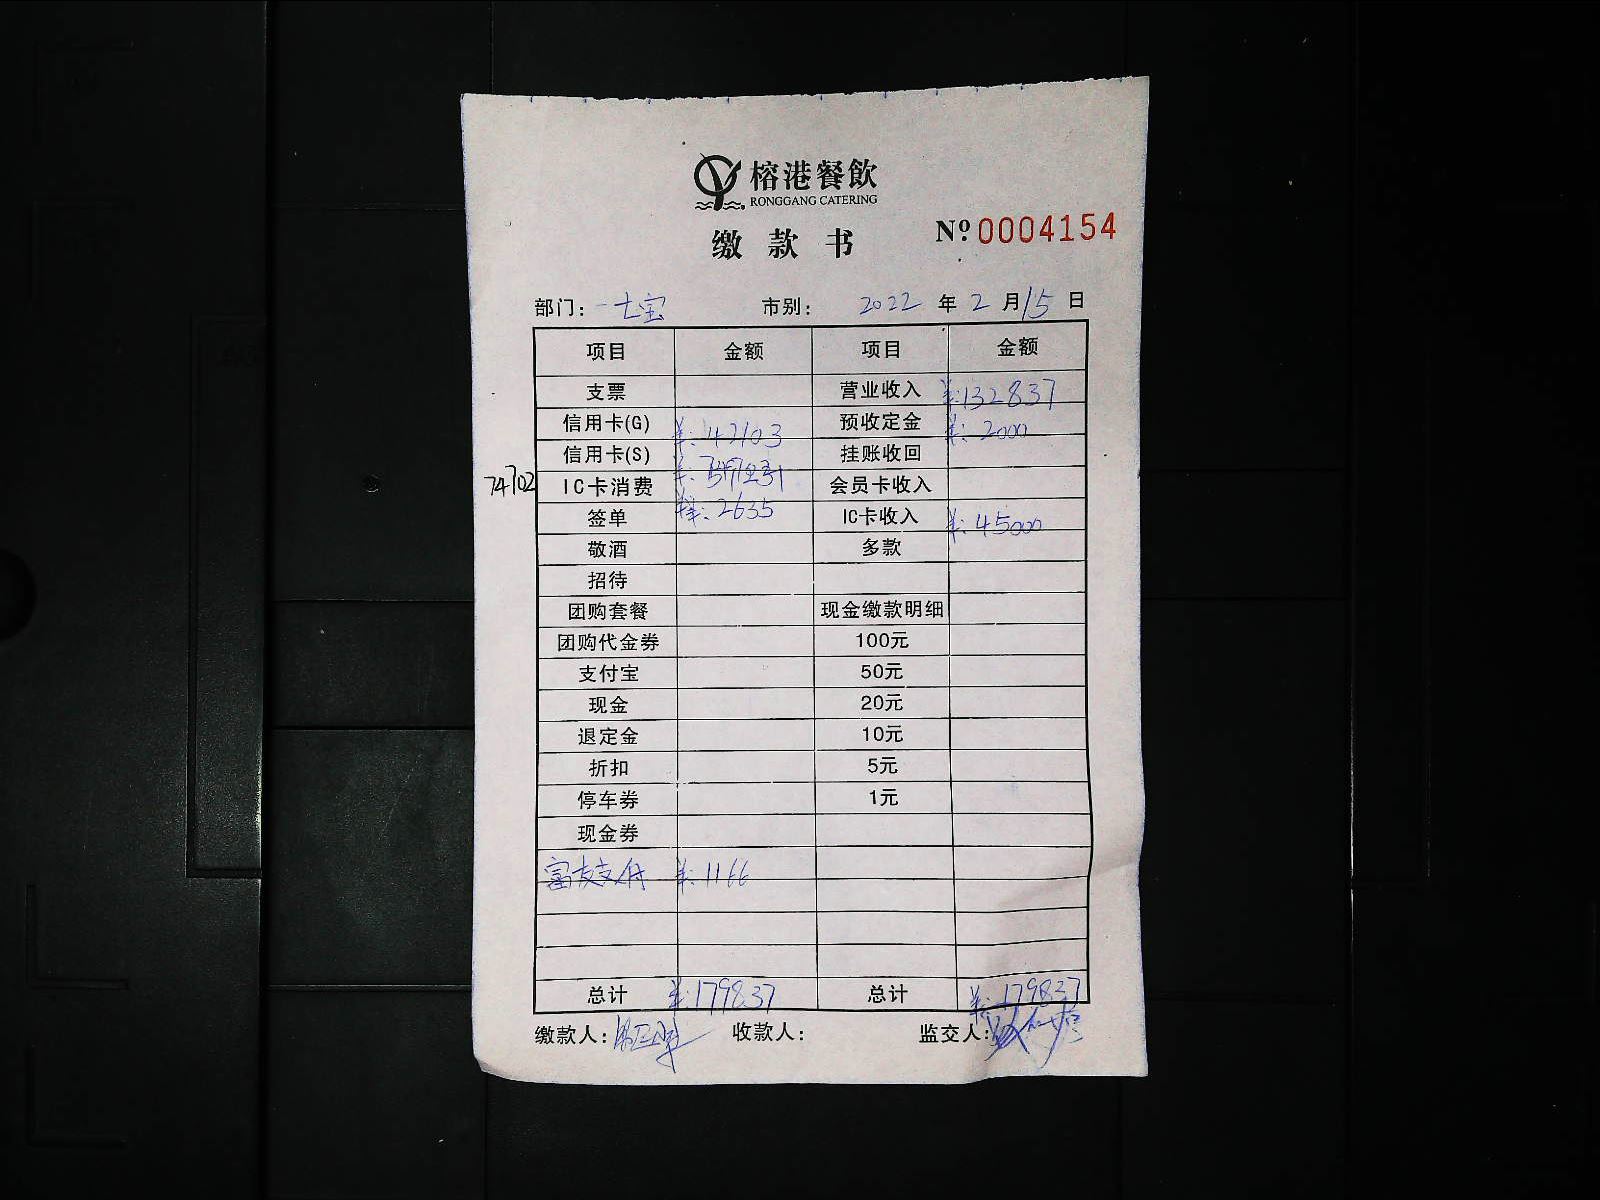 榕港餐飲
RONGGANG CATERING
缴款书
Nº 0004154
部门: 七宝 市别: 2022 年 2 月 15 日
项目 金额 项目 金额
支票 营业收入 ¥:132837
信用卡(G) ¥:42103 预收定金 ¥:2000
信用卡(S) 挂账收回
74702 IC卡消费 会员卡收入
签单 ¥:2635 IC卡收入 ¥:45000
敬酒 多款
招待
团购套餐 现金缴款明细
团购代金券 100元
支付宝 50元
现金 20元
退定金 10元
折扣 5元
停车券 1元
现金券
富友支付 ¥:1166
总计 ¥:179837 总计 ¥:179837
缴款人: 收款人: 监交人: